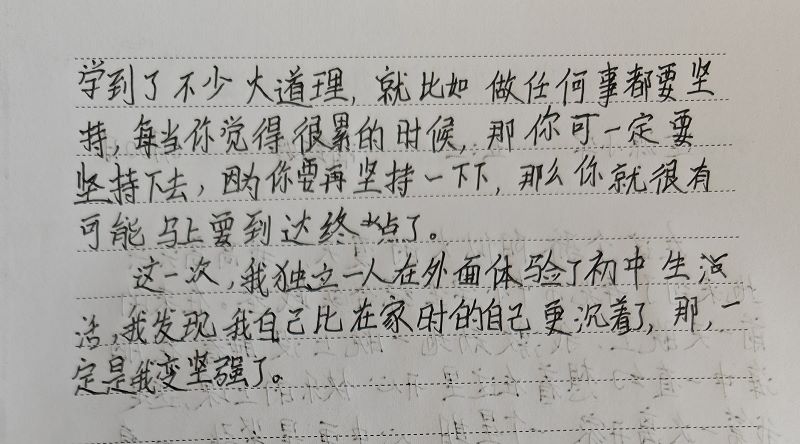 学到了不少大道理，就比如做任何事都要坚
持，每当你觉得很累的时候，那你可一定要
坚持下去，因为你要再坚持一下下，那么你就很有
可能马上要到达终点了。
这一次，我独立一人在外面体验了初中生活
活，我发现我自己比在家时的自己更沉着了，那，一
定是我变坚强了。